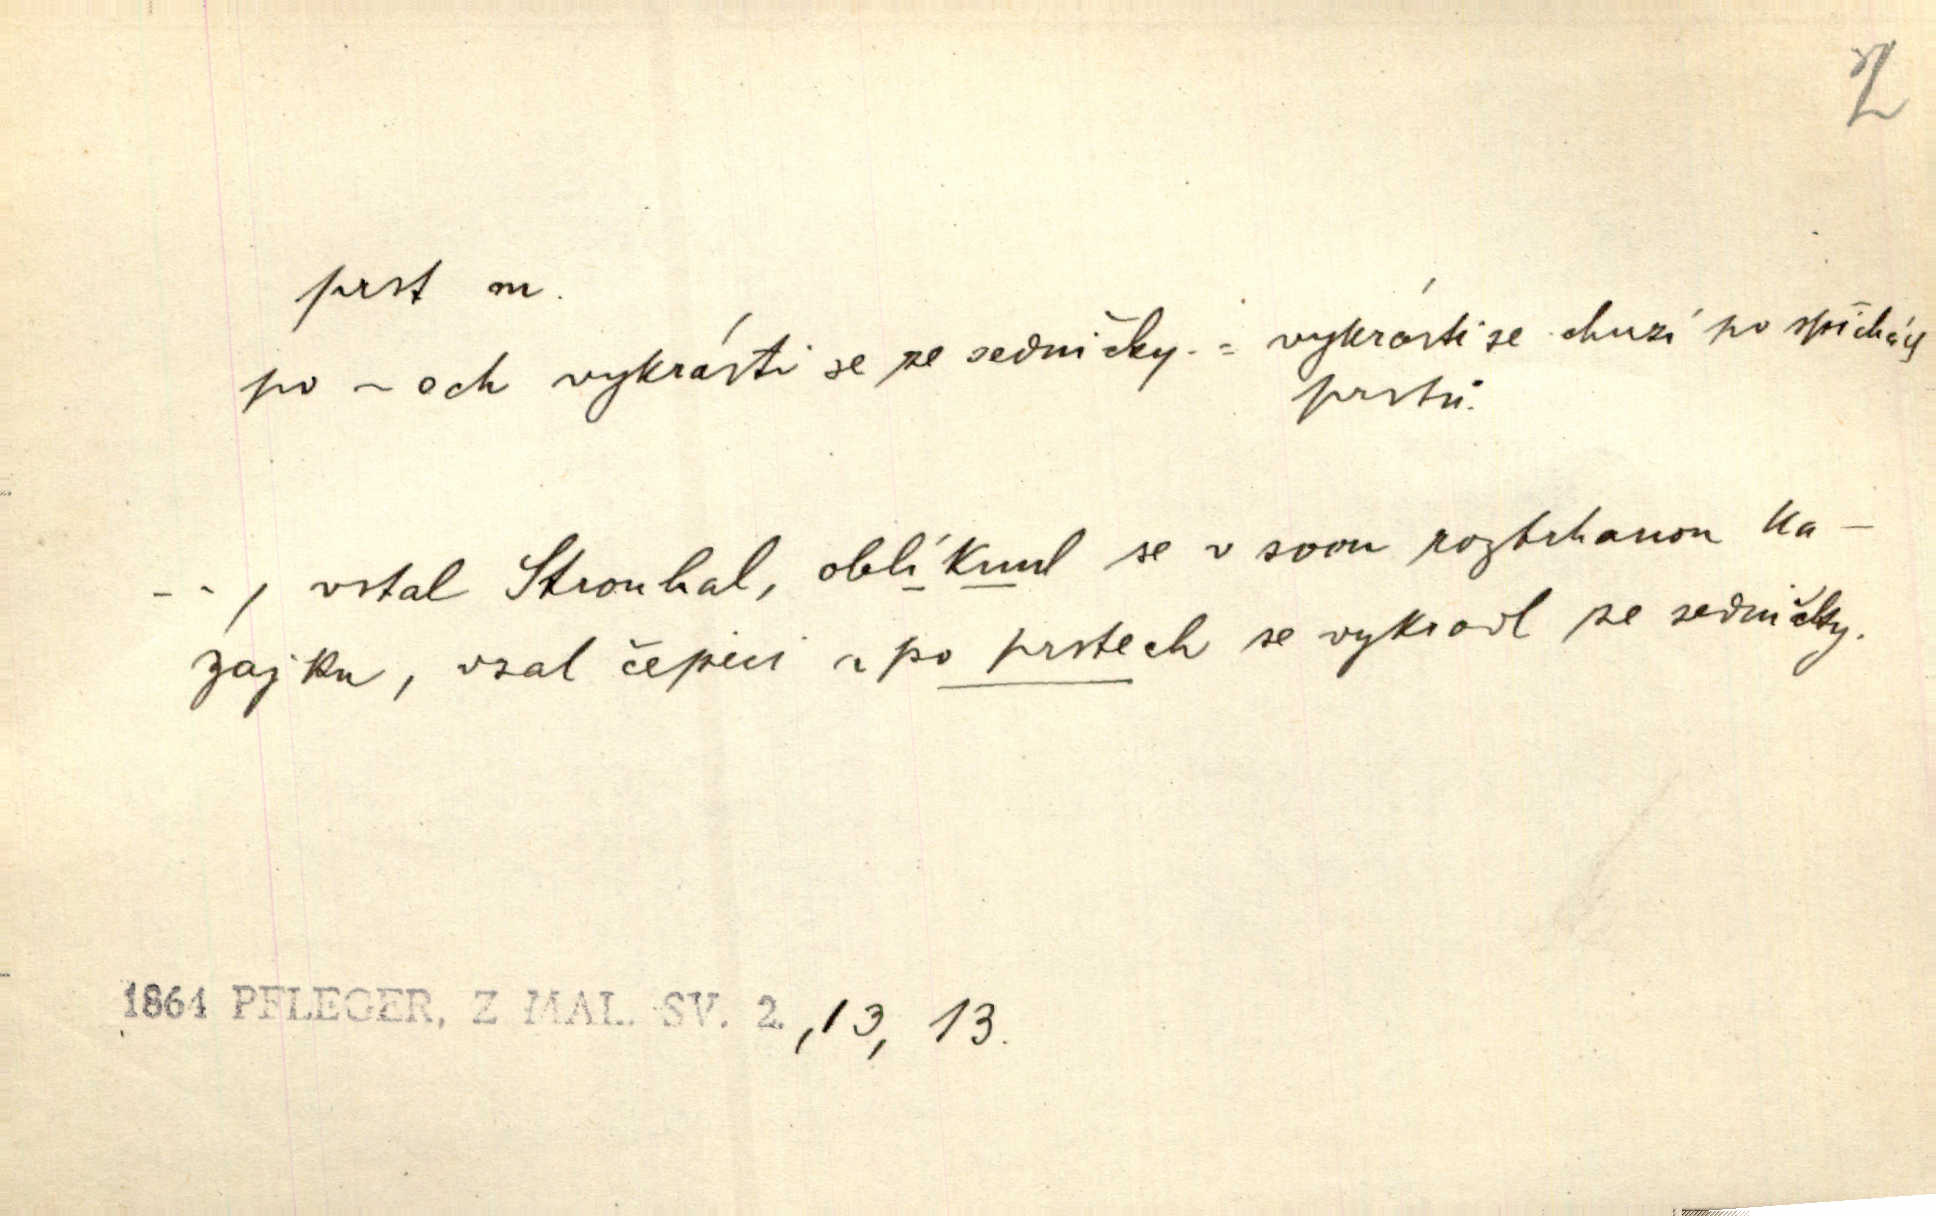 2
prst m.
po ~ ech vykrásti se ze sedničky. = vykrásti se chuzí po spičkách
prstů.
- - , vstal Strouhal, oblíknul se v svou roztrhanou ka-
zajku, vzal čepici a po prstech se vykradl ze sedničky.
1864 PFLEGER, Z MAL. SV. 2. , 13, 13.